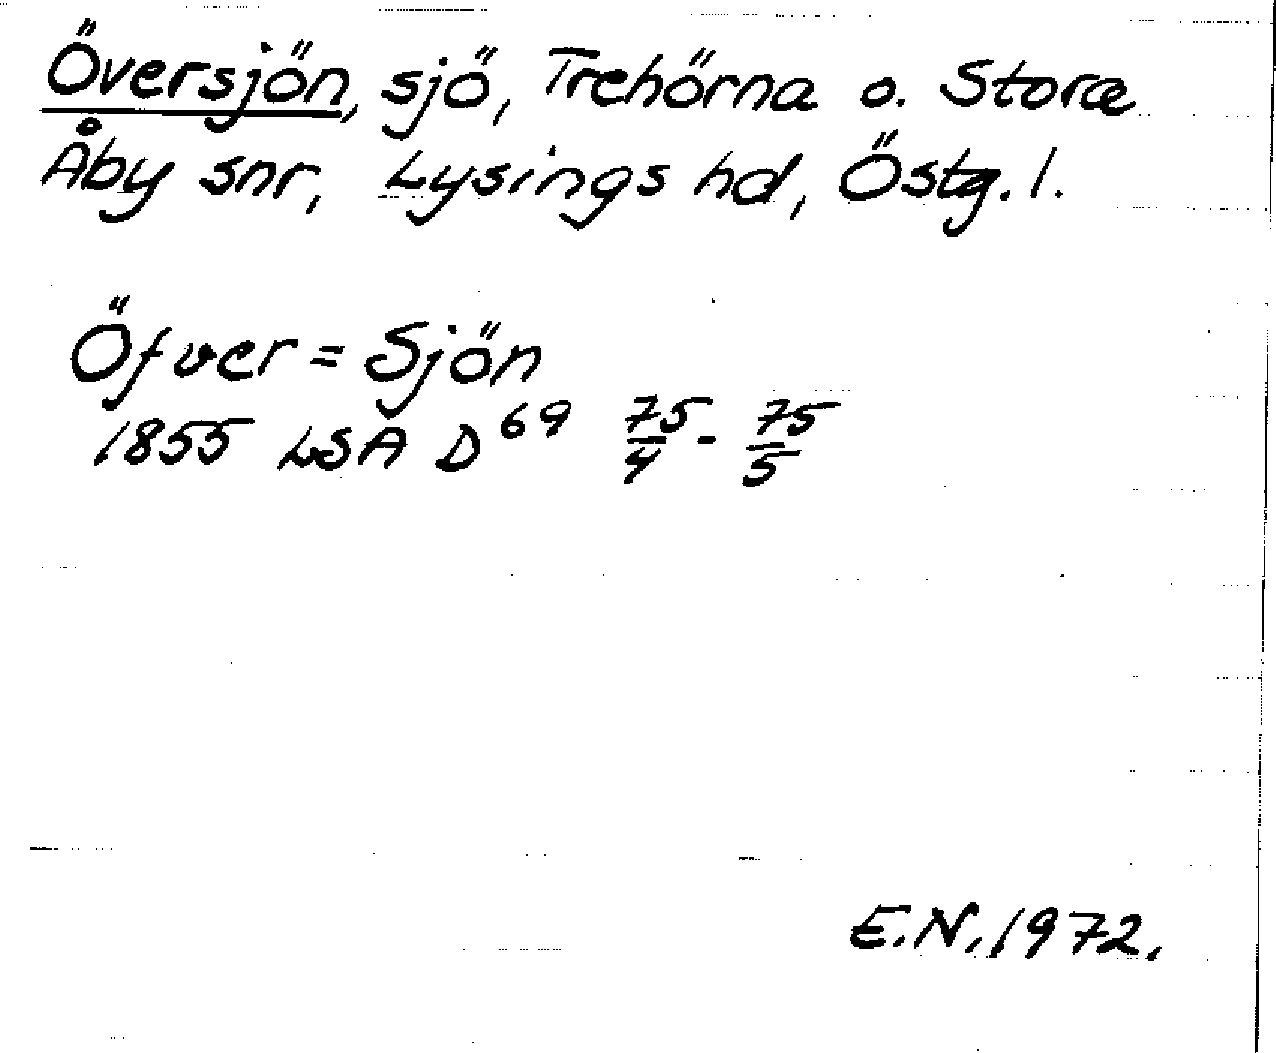 Översjön, sjö, Trehörna o. Stora
Åby snr, Lysings hd, Östg. l.
Öfver=Sjön
1855 LSA D⁶⁹ 75/4 - 75/5
E.N. 1972.